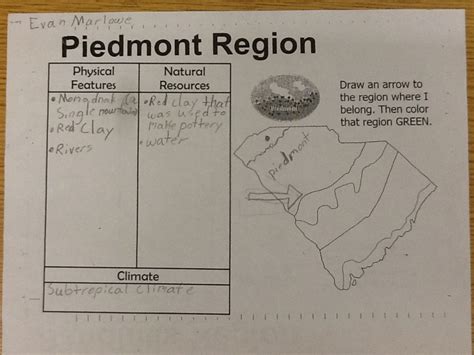 Evan Marlowe
Piedmont Region
Physical
Features
Natural
Resources
• (a
Single mountain)
• Red Clay
• Rivers
• Red clay that
was used to
make pottery
• water
Climate
Subtropical climate
Piedmont
Draw an arrow to
the region where I
belong. Then color
that region GREEN.
Piedmont